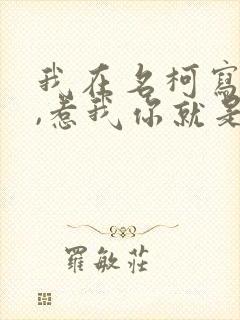 我在名柯寫
,惹我你就是
羅敏莊